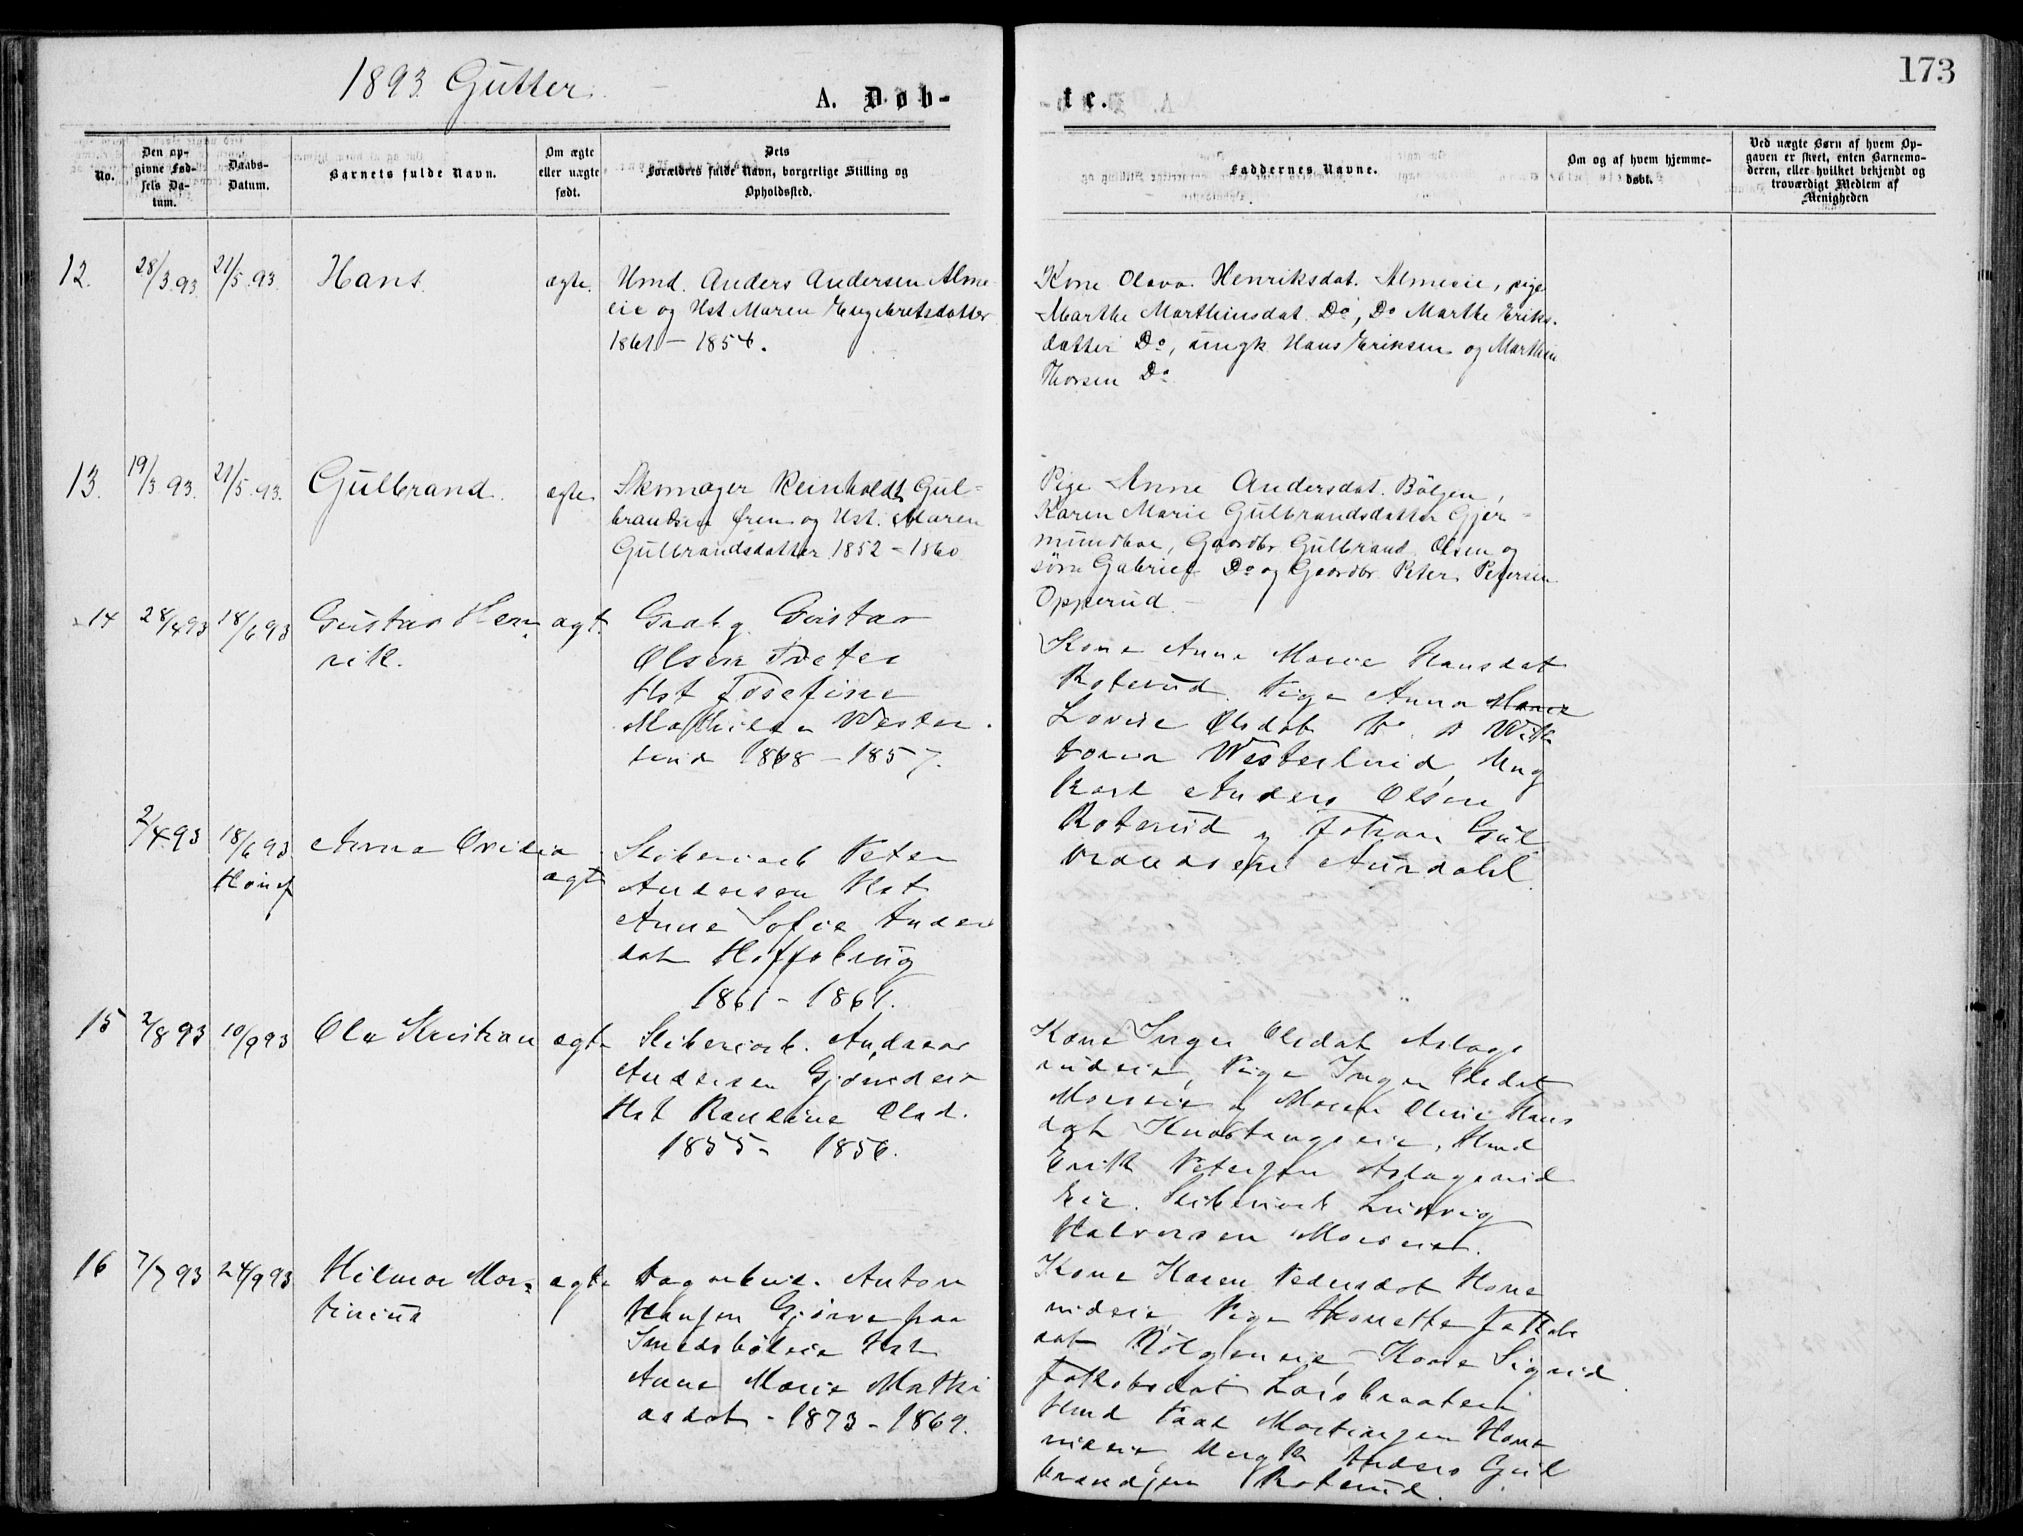 1893 Gutter.
A. Døb-
te.
173
No.
Den op-
givne Fød-
sels Da-
tum.
Daabs-
Datum.
Barnets fulde Navn.
Om ægte
eller uægte
født.
Dets
Forældres fulde Navn, borgerlige Stilling og
Opholdssted.
Faddernes Navne.
Om og af hvem hjemme-
døbt.
Ved uægte Børn af hvem Op-
gaven er skeet, enten Barnemo-
deren, eller hvilket bekjendt og
troværdigt Medlem af
Menigheden
12.
28/3.93.
21/5.93.
Hans.
ægte.
Hmd. Anders Andersen Alme
eie og Hst Maren Engebretsdatter
1861 - 1854.
Kone Olava Henriksdat. Almeeie, pige
Marthe Marthinsdat. Do, Do Marthe Eriks-
datter Do, ungk. Hans Eriksen og Marthin
Thorsen Do
13.
19/3 93.
21/5.93.
Gülbrand.
ægte
Skomager Reinholdt Gül-
brandsen Øren og Hst. Maren
Gülbrandsdatter 1852 - 1860
Pige Anne Andersdat. Bölgen,
Karen Marie Gülbrandsdatter Gjer-
mündboe, Gaardbr Gülbrand Olsen og
søn Gabriel Do og Gaardbr. Peter Petersen
Opperud.
14
28/4 93
18/6 93
Gustav Hen-
rik.
ægt.
Gaabg. Gustav
Olsen Tveter
Hst Josefine
Mathilda Wester
lund 1868 - 1857.
Kone Anne Marie Hansdat
Roterud. Pige Anna
Lovise Olsdat
Westerlund, Ung
Karl Anders Olsen
Roterud og Johan Gul
brandsen Aurdahl.
2/4 93
18/6 93
Hønef
Anna Ovidia
ægt
Sliberiarb Peter
Andersen Hst
Anne Sofie Anders
dat Hoffsbrug
1861 - 1861.
15
2/8 93
10/9 93
Ole Kristian
ægt.
Sliberiarb. Andreas
Andersen Gjørudeie
Hst Randine Olsd.
1855 - 1856.
Kone Inger Olsdat Aslags
rudeie, Pige Inger Olsdat
Moeseie og Maren Oline Hans
dat Knestangeeie, Hmd
Erik Petersen Aslagsrud
Eie. Sliberiarb Ludvig
Halvorsen Moeseie.
16
7/7 93
24/9 93
Hilmar Mar-
tinius
ægte
Dagarbeid. Anton
Hansen Gjørve fra
Smedsböleie Hst
Anne Marie Mathi
asdat - 1873 - 1869.
Kone Karen Pedersdat Hone
rudeie, Pige Jakobs
dat Bölgeneie, Kone Sigrid
Jakobsdat Larsbraaten
Hmd Paal Martinsen Hone
rudeie, Ungk Anders Gul
brandsen Roterud.